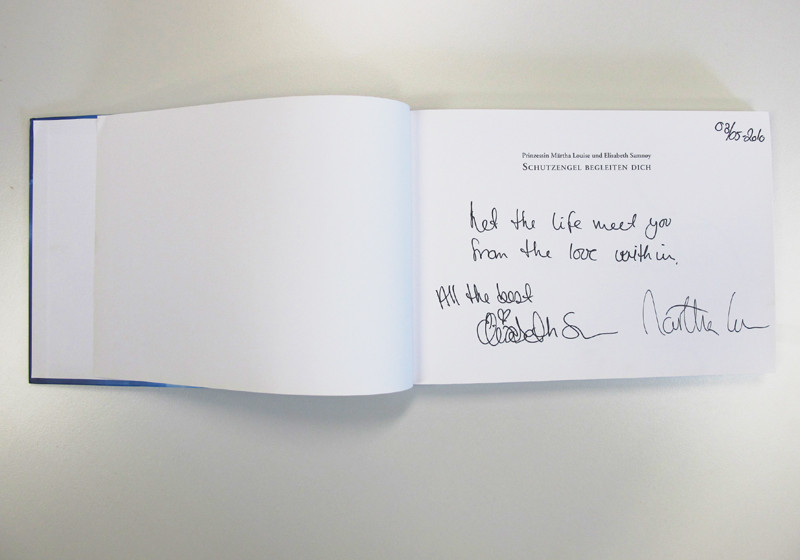 03/05-2010
Prinzessin Märtha Louise und Elisabeth Samnoy
SCHUTZENGEL BEGLEITEN DICH
Let the life meet you
from the love within.
All the best
Elisabeth S
Märtha Lou